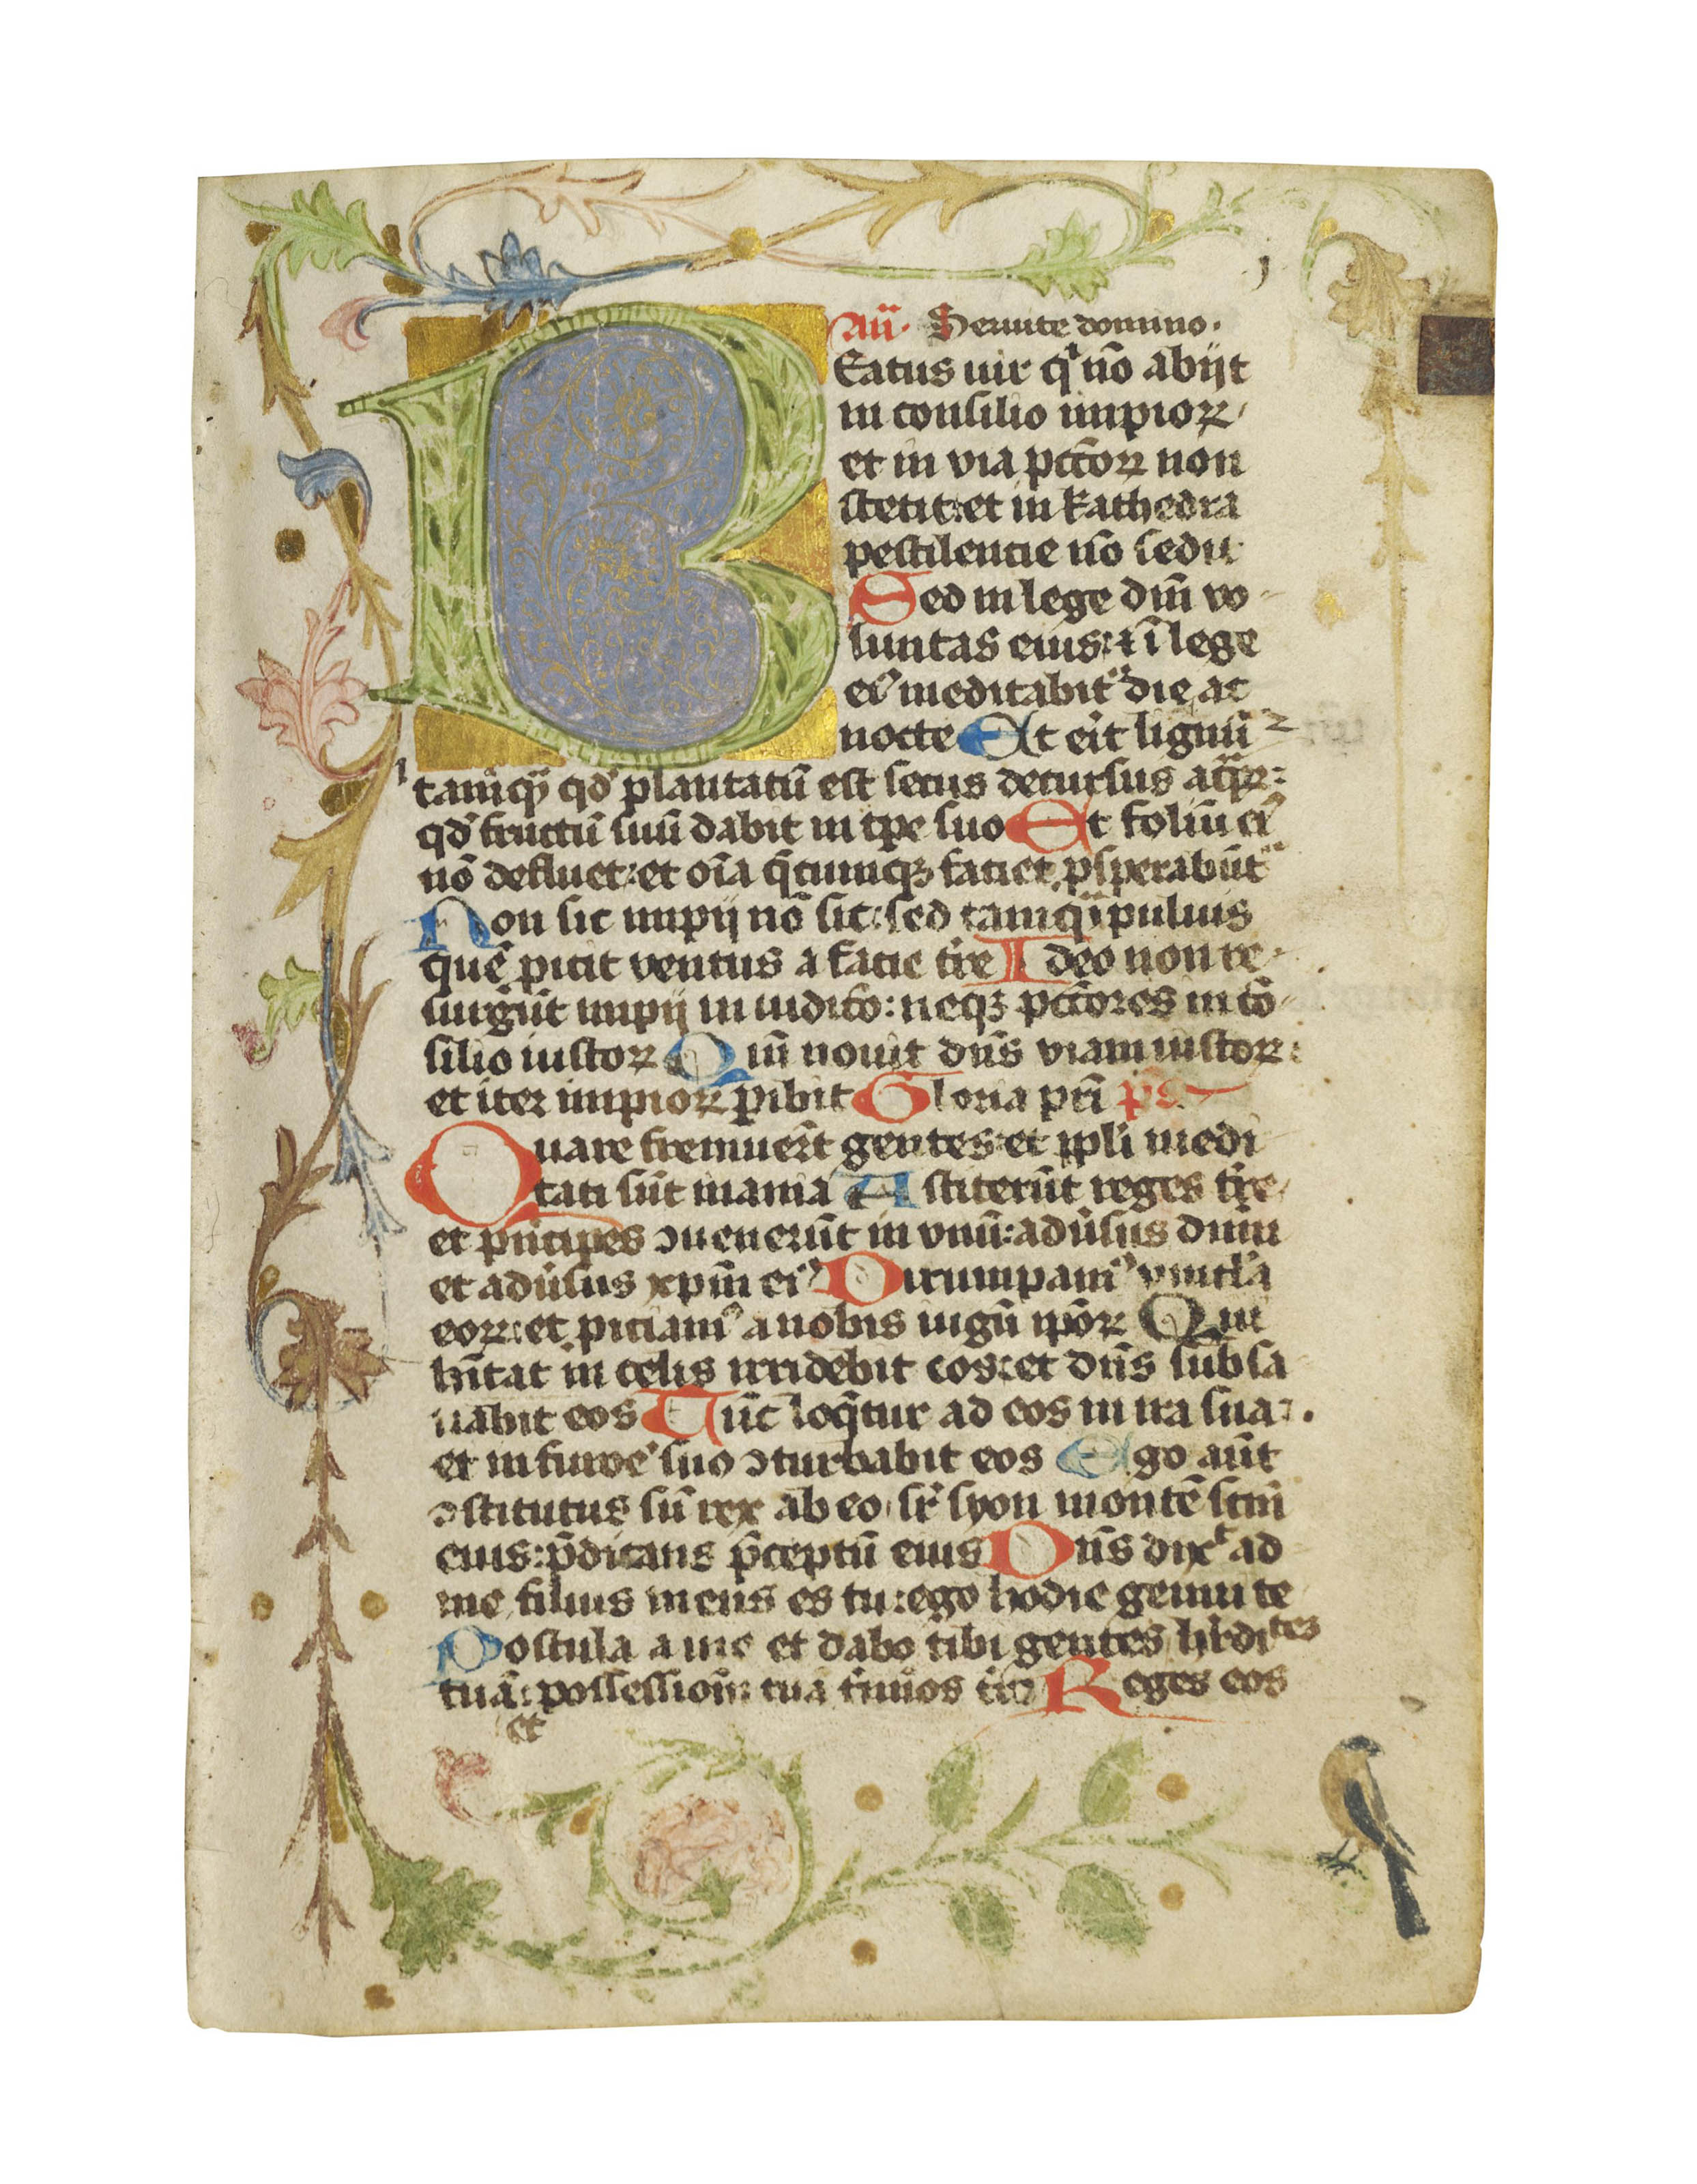 j
Añ. Seruite domino.
Beatus uir qⁱ nō abijt
in consilio impioꝝ
et in via pctōꝝ non
stetit: et in kathedra
pestilencie nō sedit
Sed in lege dn̄i vo
luntas eius: ⁊ ī lege
eiꝰ meditabitᷣ die ac
nocte Et erit lignū
tamqᷓ qd̛ plantatū est secus decursus aqᷓꝝ:
qd̛ fructū suū dabit in tꝑe suo Et foliū eiꝰ
nō defluet: et oīa q̄cumqꝫ faciet ꝓsperabūtᷣ
Non sic impij nō sic: sed tamqᷓ puluis
quē ꝓicit ventus a facie t̄re Ideo non re
surgūt impij in iudicio: neqꝫ pctōres in cō
silio iustoꝝ Qm̄ nouit dn̄s viam iustoꝝ:
et iter impioꝝ ꝑibit Gloria pr̄i ps̄
Quare fremuer̄t gentes: et ppl̄i medi
tati sūt inania Astiterūt reges t̄re
et pⁿcipes ꝯuenerūt in vnū: adūsus dnm̄
et adūsus xpm̄ eiꝰ Dirumpamꝰ vincl̄a
eoꝝ: et ꝓiciamꝰ a nobis iugū ip̄oꝝ Qui
hītat in celis irridebit eos: et dn̄s subsa
nabit eos Tūc loq̄tur ad eos in ira sua:
et in furoē suo ꝯturbabit eos Ego aūt
ꝯstitutus sū rex ab eo sr̄ syon montē scm̄
eius: p̄dicans p̄ceptū eius Dn̄s dixᵗ ad
me filius meus es tu: ego hodie genui te
Postula a me et dabo tibi gentes hr̄diteꝫ
tuā: possessionē tuā t̄mīos t̄re Reges eos
et